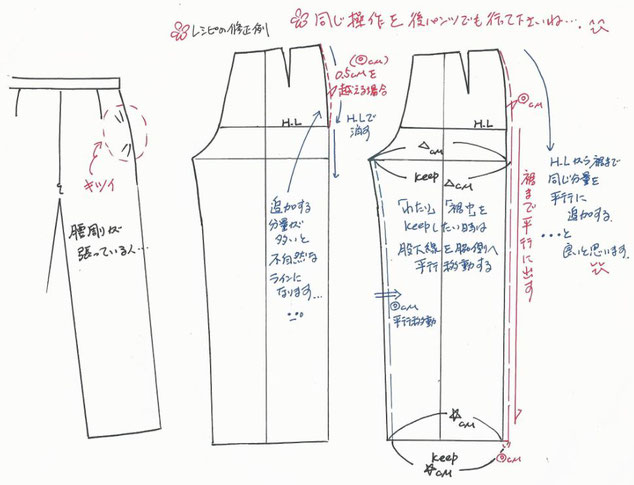 レシピの修正例
同じ操作を後パンツでも行て下さいね…
キツイ
腰周りが
張っている人…
(◎cm)
0.5cmを
越える場合
H.Lで
消す
H.L
追加する
分量が
多いと
不自然な
ラインに
なります…
H.L
◎cm
△cm
keep
△cm
「わたり」「裾巾」を
keepしたい時は
股下線を脇側へ
平行移動する
◎cm
平行移動
☆cm
keep
☆cm
◎cm
裾まで平行に出す
H.Lから裾まで
同じ分量を
平行に
追加する
…と
良いと思います